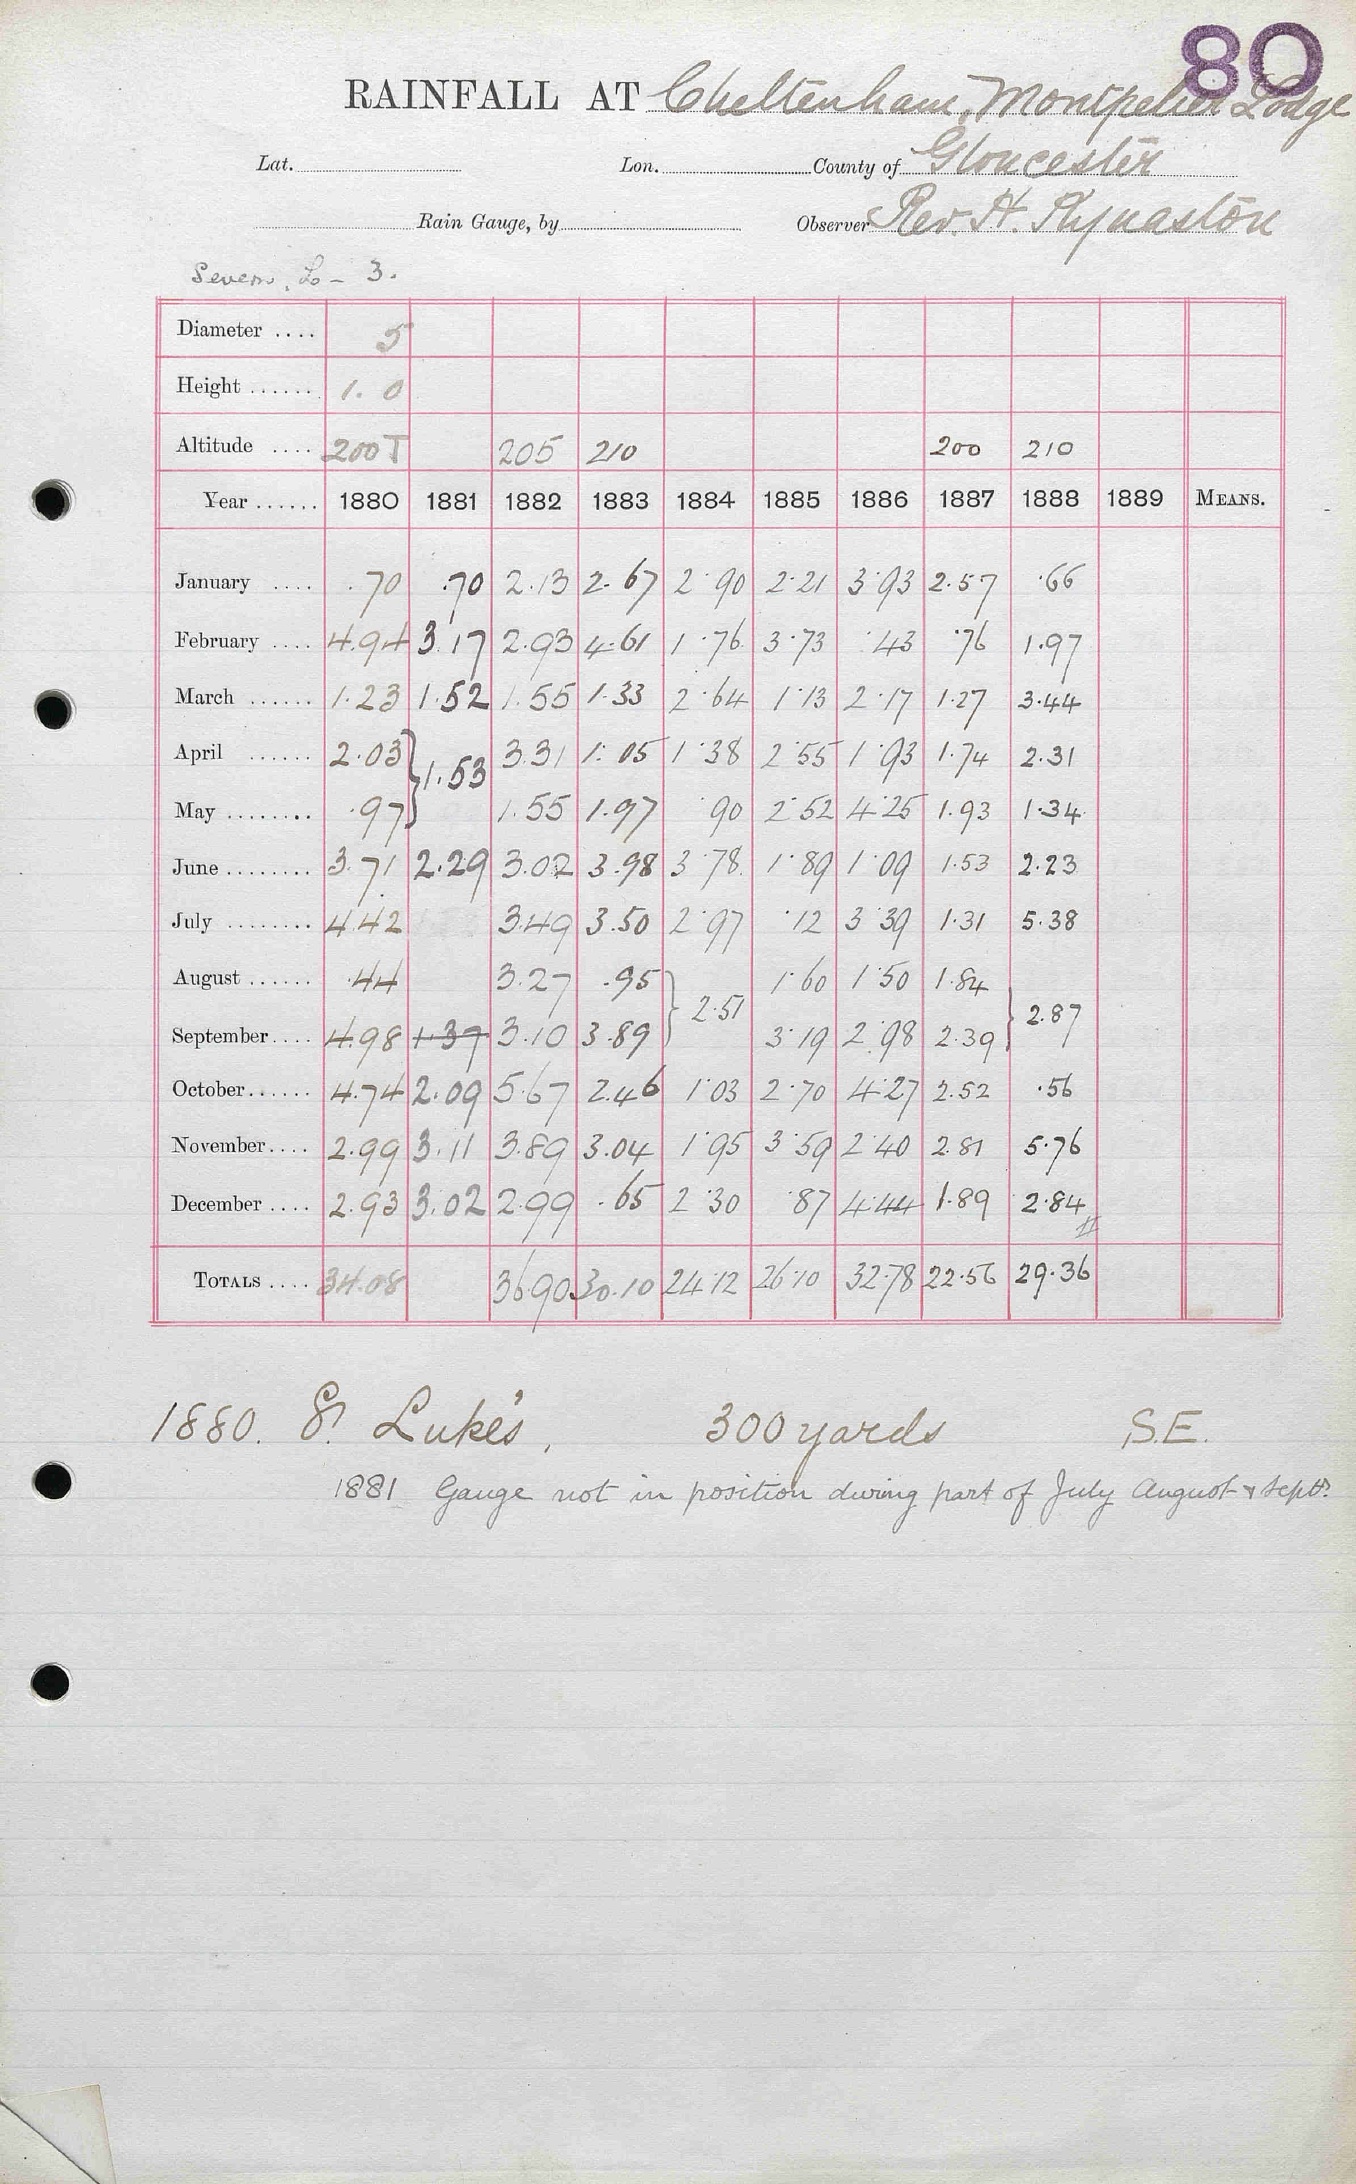 80
RAINFALL AT Cheltenham, Montpelier Lodge
Lat. Lon. County of Gloucester
Rain Gauge, by Observer Rev. H. Kynaston
Severn, Lo - 3.
Diameter .... 5
Height ...... 1.0
Altitude .... 200T 205 210 200 210
Year ...... 1880 1881 1882 1883 1884 1885 1886 1887 1888 1889 MEANS.
January .... .70 .70 2.13 2.67 2.90 2.21 3.93 2.57 .66
February .... 4.94 3.17 2.93 4.61 1.76 3.73 .43 .76 1.97
March ...... 1.23 1.52 1.55 1.33 2.64 1.13 2.17 1.27 3.44
April ...... 2.03 } 1.53 3.31 1.05 1.38 2.55 1.93 1.74 2.31
May ........ .97 1.55 1.97 .90 2.52 4.25 1.93 1.34
June ........ 3.71 2.29 3.02 3.98 3.78 1.89 1.09 1.53 2.23
July ........ 4.42 3.49 3.50 2.97 .12 3.39 1.31 5.38
August ...... .44 3.27 .95 } 2.51 1.60 1.50 1.84 } 2.87
September .... 4.98 1.37 3.10 3.89 3.19 2.98 2.39
October ...... 4.74 2.09 5.67 2.46 1.03 2.70 4.27 2.52 .56
November .... 2.99 3.11 3.89 3.04 1.95 3.59 2.40 2.81 5.76
December .... 2.93 3.02 2.99 .65 2.30 .87 4.44 1.89 2.84
TOTALS .... 34.08 36.90 30.10 24.12 26.10 32.78 22.56 29.36
1880. St. Luke's, 300 yards S.E.
1881 Gauge not in position during part of July August & Septr.